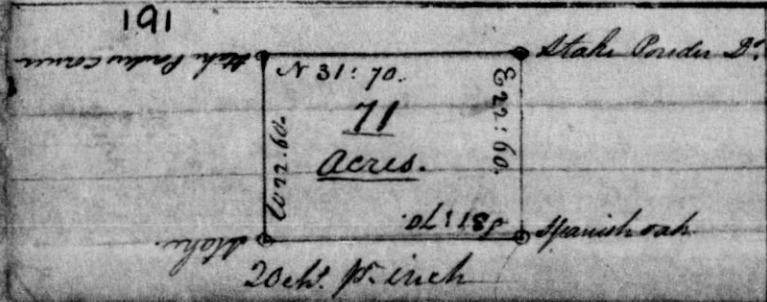 191
Stake Ponder Corner
Stake Ponder Do.
N 31: 70.
E 22: 60.
71
Acres.
W 22. 60.
S 31: 70.
Stake.
Spanish oak
20 chs. pr. inch